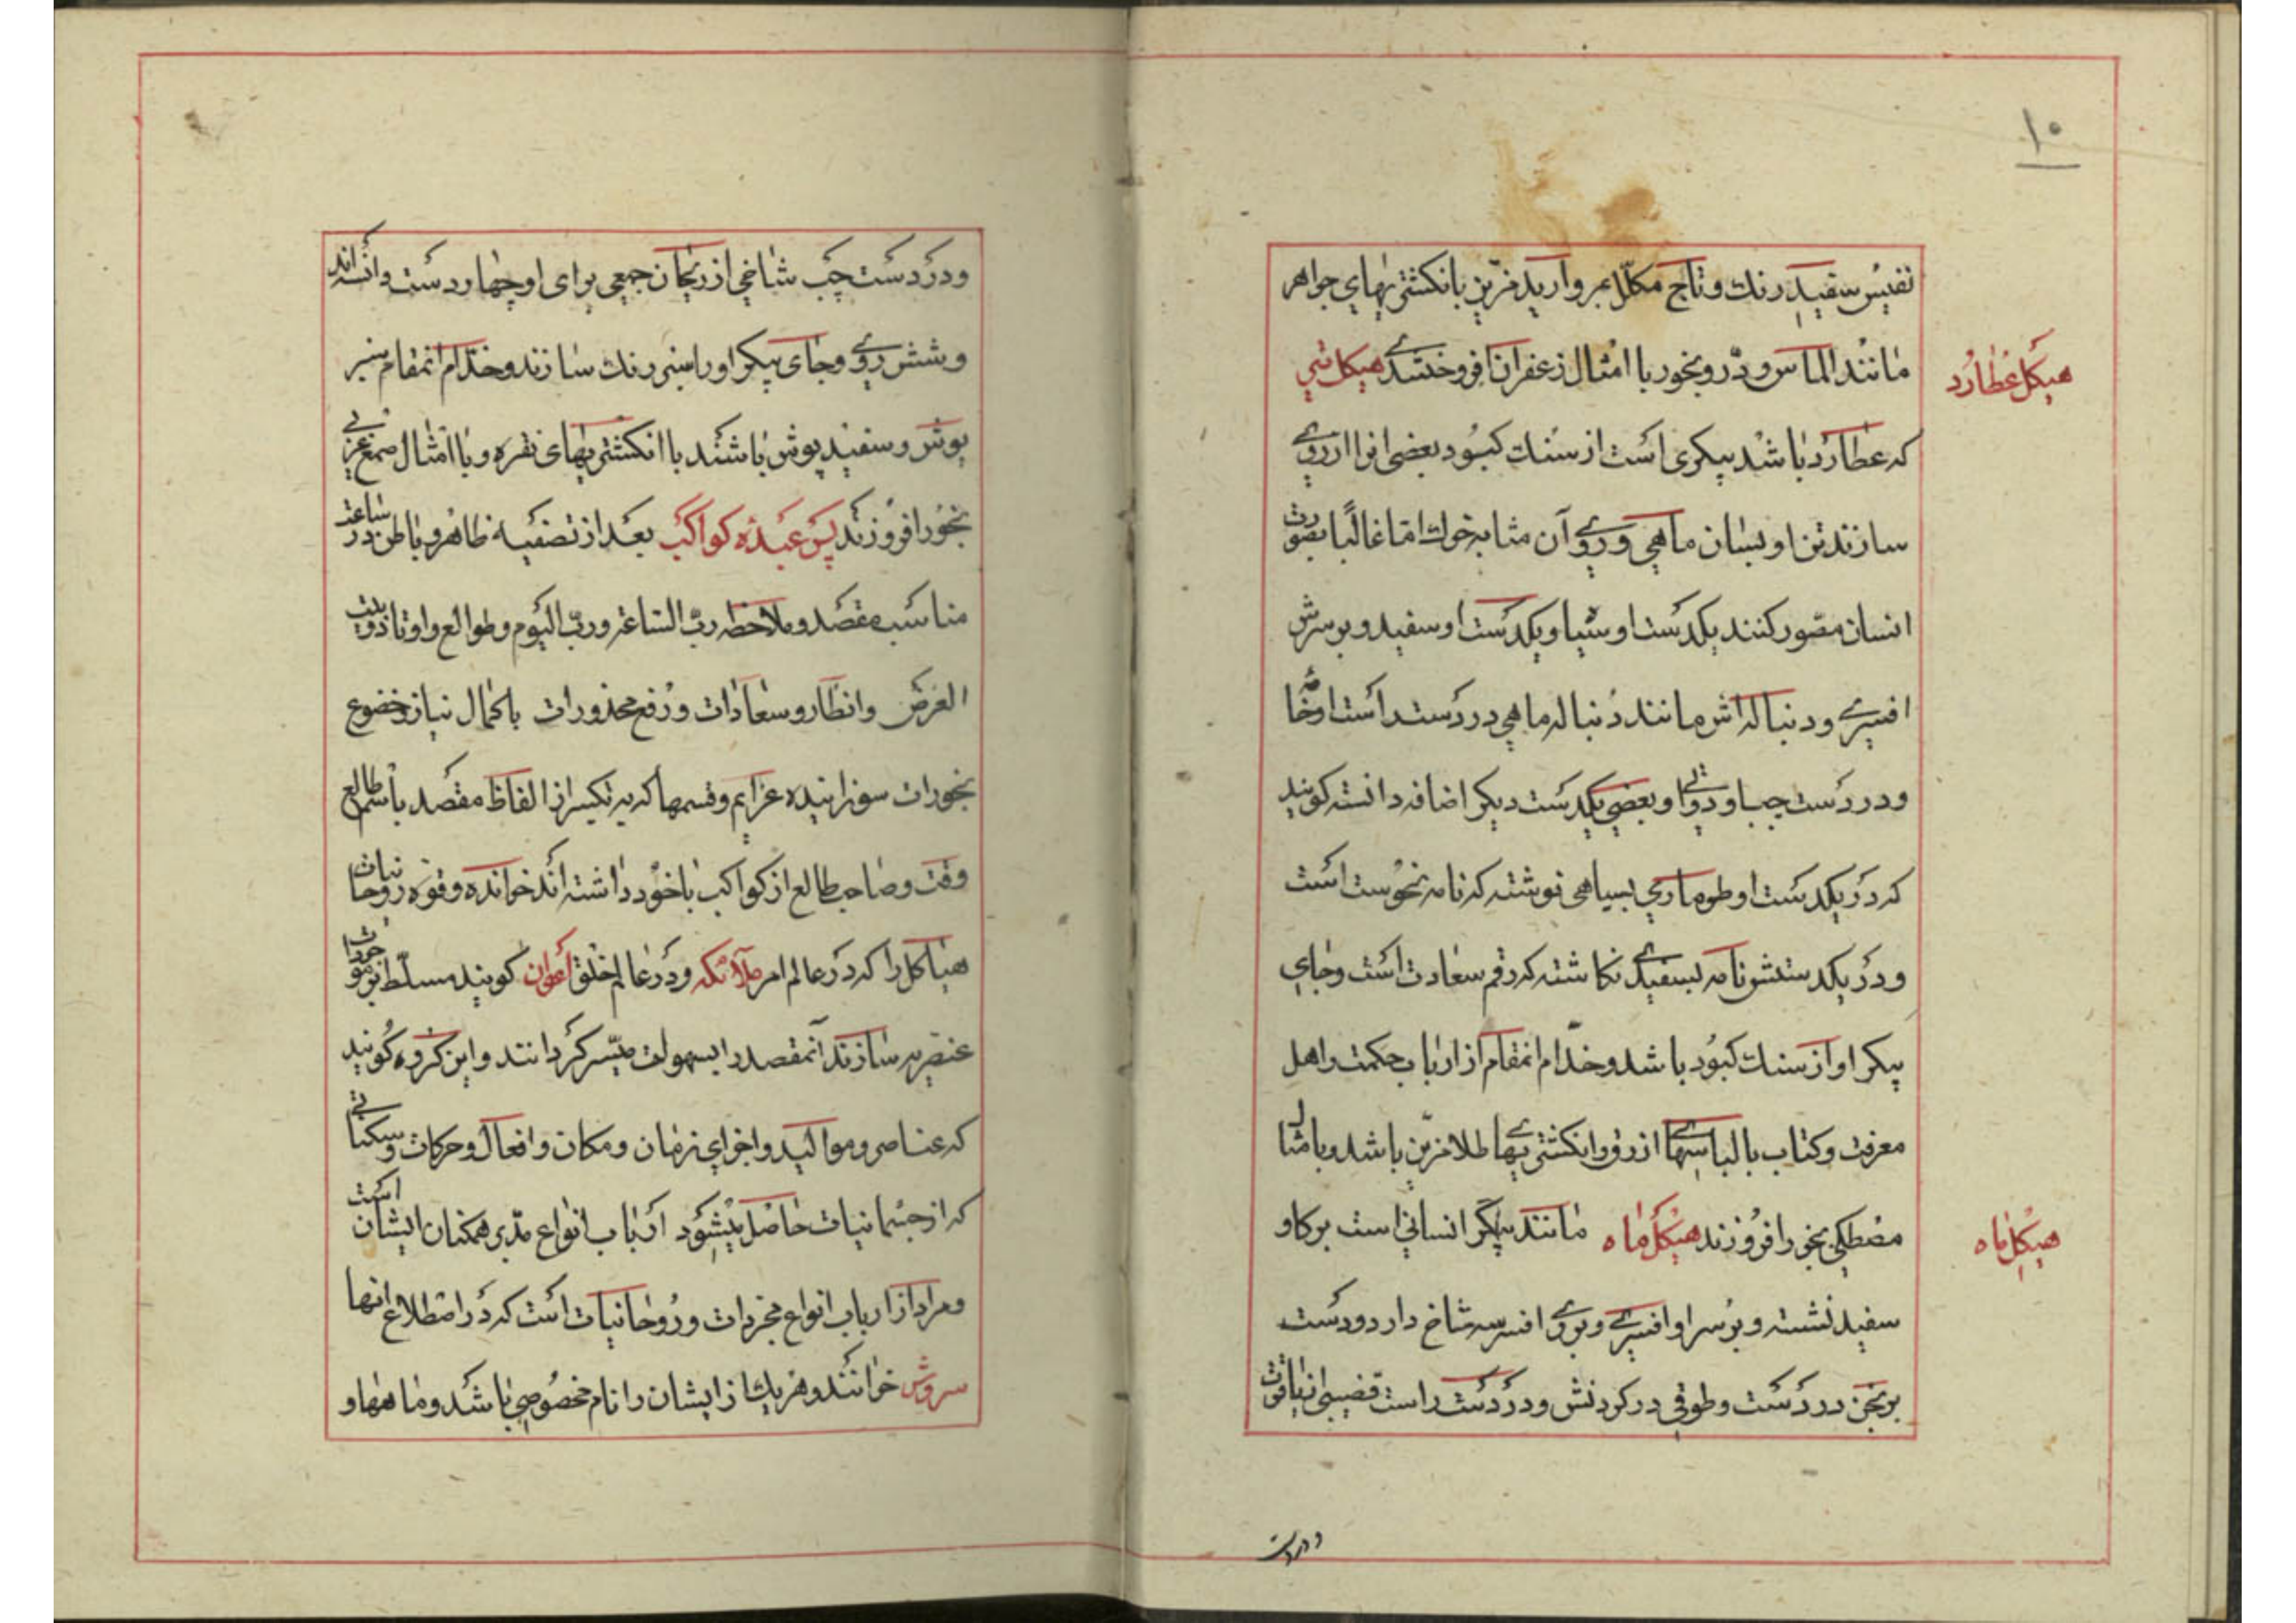 ۱۰
نفیس سفید رنك و تاج مکلّل بمروارید مزّین بانکشتریهای جواهر
مانند الماس و درّ و بخور با امثال زعفران افروختندے هیکل تیر
هیکل عُطارُد
که عطارد باشد پیکری است از سنك کبود بعضی انرا از روے
سازند تن او بسان ماهی و روے آن مشابه خوك امّا غالبًا بصورت
انسان مصّور کنند یکدست او سیاه و یکدست او سفید و بر سرش
افسرے و دنباله اش مانند دنباله ماهی در دست راست او خامۀ
و در دست چپ او دواتی و بعضی یکدست دیکر اضافه دانسته کویند
که در یکدست او طومارے بسیاهی نوشته که نامه نحوست است
و در یکدستش نامه بسفیدے نکاشته که رقم سعادت است و جای
پیکر او از سنك کبود باشد و خدّام انمقام از ارباب حکمت و اهل
معرفت و کتاب با لباسهاے ازرق و انکشتریهاے طلا مزّین باشد و با مثال
مصطکی بخور افروزند هیکل ماه مانند پیکر انسانی است بر کاو
هیکل ماه
سفید نشسته و بر سر او افسرے و بروے افسر سه شاخ دارد و دست
برنجن در دست و طوقی در کردنش و در دست راست قضیبی از یاقوت
و در دست
و در دست چپ شاخی از ریحان جمعی برای او چهار دست دانسته اند
و شش روے و جای پیکر او را سبز رنك سازند و خدّام انمقام سبز
پوش و سفید پوش باشند با انکشتریهای نقره و با امثال صمغ عربے
بخور افروزند پس عبدۀ کواکب بعد از تصفیه ظاهر و باطن در ساعت
مناسب مقصد و ملاحظه ربّ الساعة و ربّ الیوم و طوالع و اوتاد و بیت
الغرض و انظار و سعادات و رفع محذورات با کمال نیاز و خضوع
بخورات سوزانیده عزایم و قسمها که به تکسیر از الفاظ مقصد باسم طالع
وقت و صاحب طالع از کواکب با خود داشته اند خوانده و قوه روحانیات
هیاکل را که در عالم امر ملائکه و در عالم خلق اعوان کویند مسلّط بر موجودات
عنصریه سازند آنمقصد را بسهولت میّسر کردانند و این کروه کویند
که عناصر و موالید و اجزای زمان و مکان و افعال و حرکات و سکناتے
که از جسمانیات حاصل میشود ارباب انواع مدّبر همکنان ایشان است
و مراد از ارباب انواع مجردات و روحانیات است که در اصطلاع انها
سروش خوانند و هر یك از ایشان را نام مخصوصی باشد و ماهها و